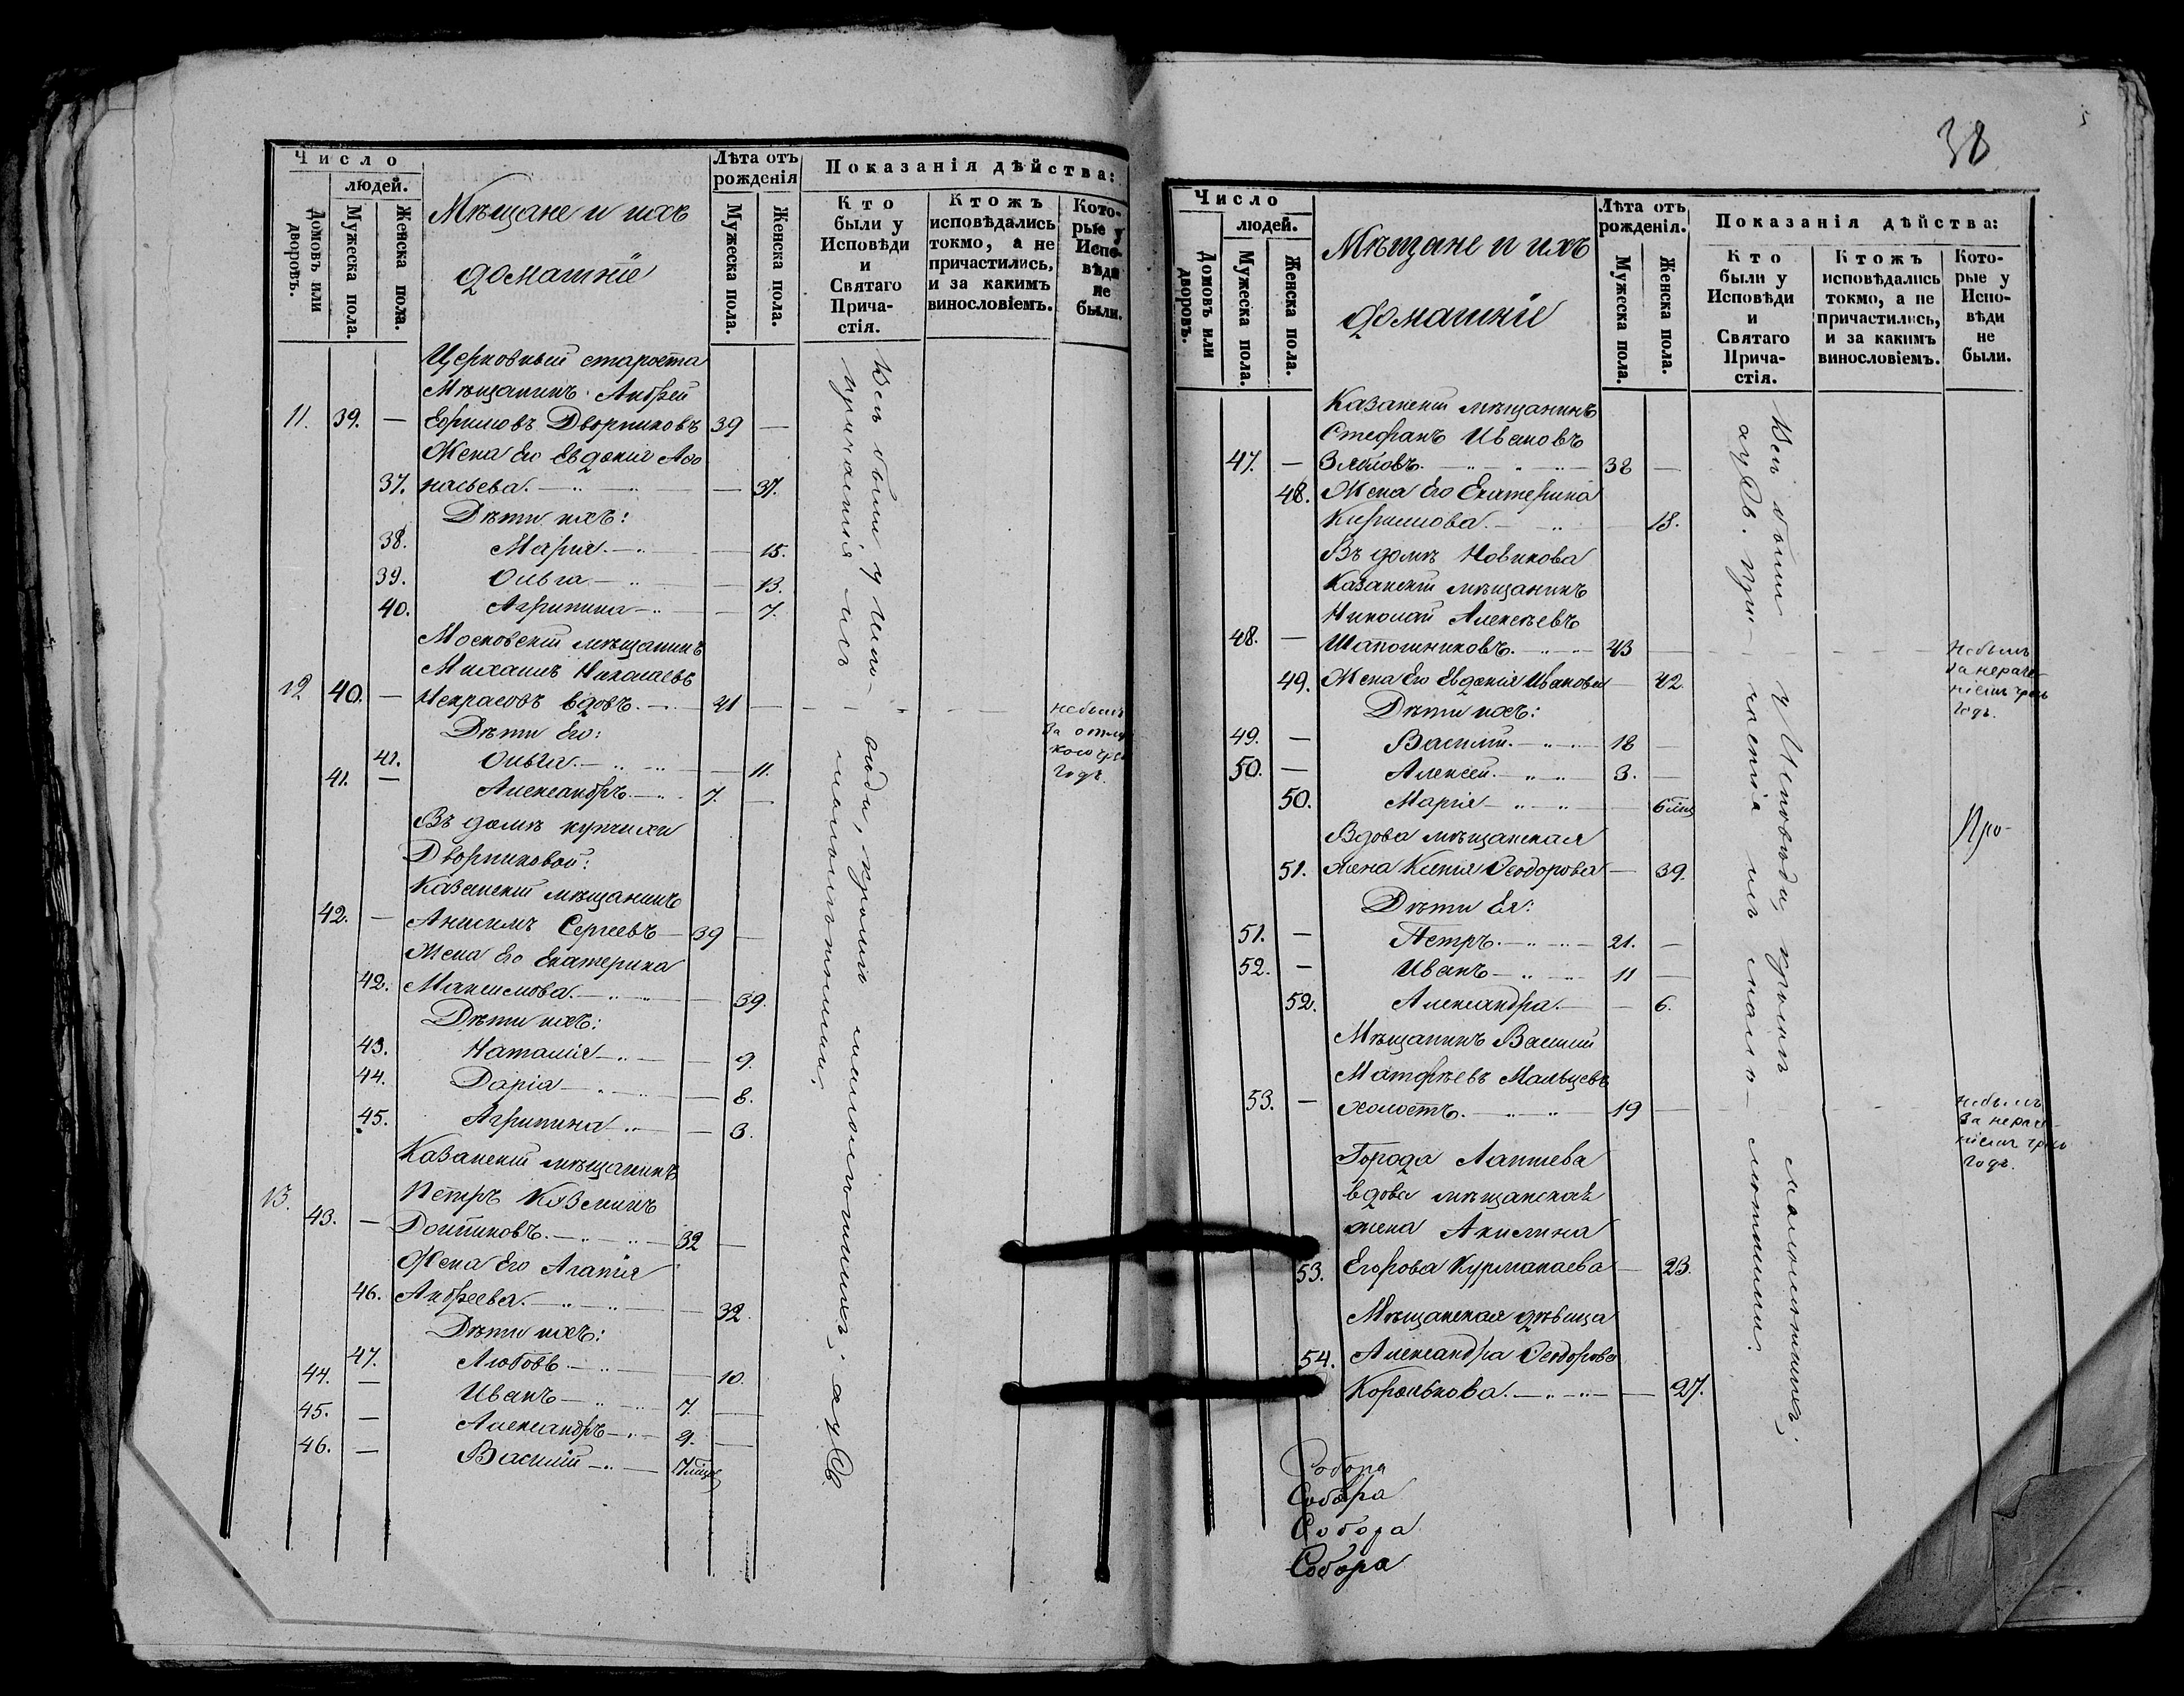 Число
людей.
Домовъ или дворовъ.
Мужеска пола.
Женска пола.
Мѣщане и ихъ
домашніе
Лѣта отъ рожденія
Мужеска пола.
Женска пола.
Показанія дѣйства:
Кто были у Исповѣди и Святаго Прича-стія.
Ктожъ исповѣдались токмо, а не причастились, и за какимъ винословіемъ.
Кото-рые у Испо-вѣди не были.
Церковный староста
Мѣщанинъ Андрей
11. 39. — Ефимовъ Дворниковъ 39 —
Жена Его Евдокія Афо
37. насьева. — 37.
Дѣти ихъ:
38. Марія. — 15.
39. Ольга — 13.
40. Агрипина — 7.
Московскій мѣщанинъ
Михаилъ Николаевъ
12 40. — Некрасовъ вдовъ. — 41 —
небылъ
за отлу
Годъ.
Дѣти Его:
41. Ольга. — 11.
41. — Александръ. — 7. —
Въ домѣ купчихи
Дворниковой:
Казанскій мѣщанинъ
42. — Анисимъ Сергеевъ — 39 —
Жена Его Екатерина
42. Максимова. — 39.
Дѣти ихъ:
43. Наталія — 9.
44. Дарія — 8.
45. Агрипина — 3.
Казанскій мѣщанинъ
13. Петръ Козминъ
43. — 32 —
Жена Его Агапія
46. Андреева. — 32.
Дѣти ихъ:
47. Любовь — 10.
44. — Иванъ — 7. —
45. — Александръ — 4. —
46. — Василій — 7 мѣся
Всѣ были у Испо- вѣди, кромѣ ; а у Св.
причастія съ малолѣтними.
38
Число
людей.
Домовъ или дворовъ.
Мужеска пола.
Женска пола.
Мѣщане и ихъ
домашніе
Лѣта отъ рожденія.
Мужеска пола.
Женска пола.
Показанія дѣйства:
Кто были у Исповѣди и Святаго Прича-стія.
Ктожъ исповѣдались токмо, а не причастились, и за какимъ винословіемъ.
Кото-рые у Испо-вѣди не были.
Казанскій мѣщанинъ
Стефанъ Ивановъ
47. — 38 —
48. Жена Его Екатерина
Кирилова. — 18.
Въ домѣ Новикова
Казанскій мѣщанинъ
Николай Алексѣевъ
48. — Шапошниковъ. — 43 —
небылъ
за нераче-
ніемъ
Годъ.
49. Жена Его Евдокія Иванова — 42.
Дѣти ихъ:
49. — Василій. — 18 —
50. — Алексѣй. — 3. —
50. Марія — 6 мѣс
Про-
Вдова мѣщанская
51. жена Ксенія Ѳеодорова — 39.
Дѣти Ея:
51. — Петръ. — 21. —
52. — Иванъ — 11 —
52. Александра. — 6.
Мѣщанинъ Василій
Матфѣевъ Мальцевъ
53. — холостъ. — 19 —
небылъ
за нераче-
ніемъ
Годъ.
Города Лаишева
вдова мѣщанская
жена Акилина
53. Егорова Курманаева — 23.
Мѣщанская дѣвица
54. Александра Ѳеодорова
— 27.
Всѣ были у Исповѣди, кромѣ ;
а у Св. При- частія съ мало- лѣтними.
Собора
Собора
Собора
Собора